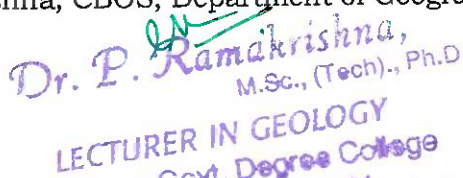 CBOS, Department of Geogr
Dr. P. Ramakrishna,
M.Sc., (Tech)., Ph.D
LECTURER IN GEOLOGY
Govt. Degree College